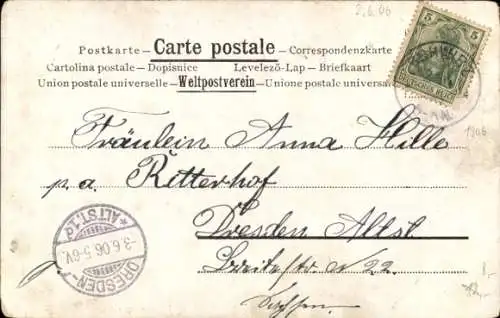 2.6.06
Postkarte – Carte postale – Correspondenzkarte
Cartolina postale – Dopisnice Levelező-Lap – Briefkaart
Union postale universelle – Weltpostverein – Unione postale universale
5 5
DEUTSCHES REICH
1906
Fräulein Anna Hille
p.a. Ritterhof
Dresden Altst.
Breitestr. N 22.
Sachsen.
DRESDEN-
-3.6.06.5-6V.
* ALTST. 1.d